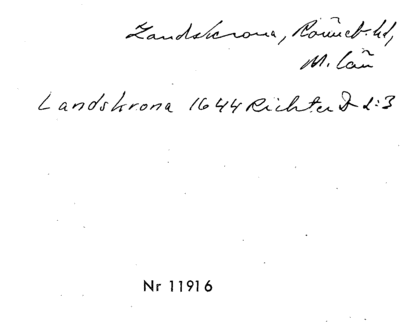 Landskrona, Rönneb. hd,
M. län
Landskrona 1644 Richter D 2:3
Nr 11916